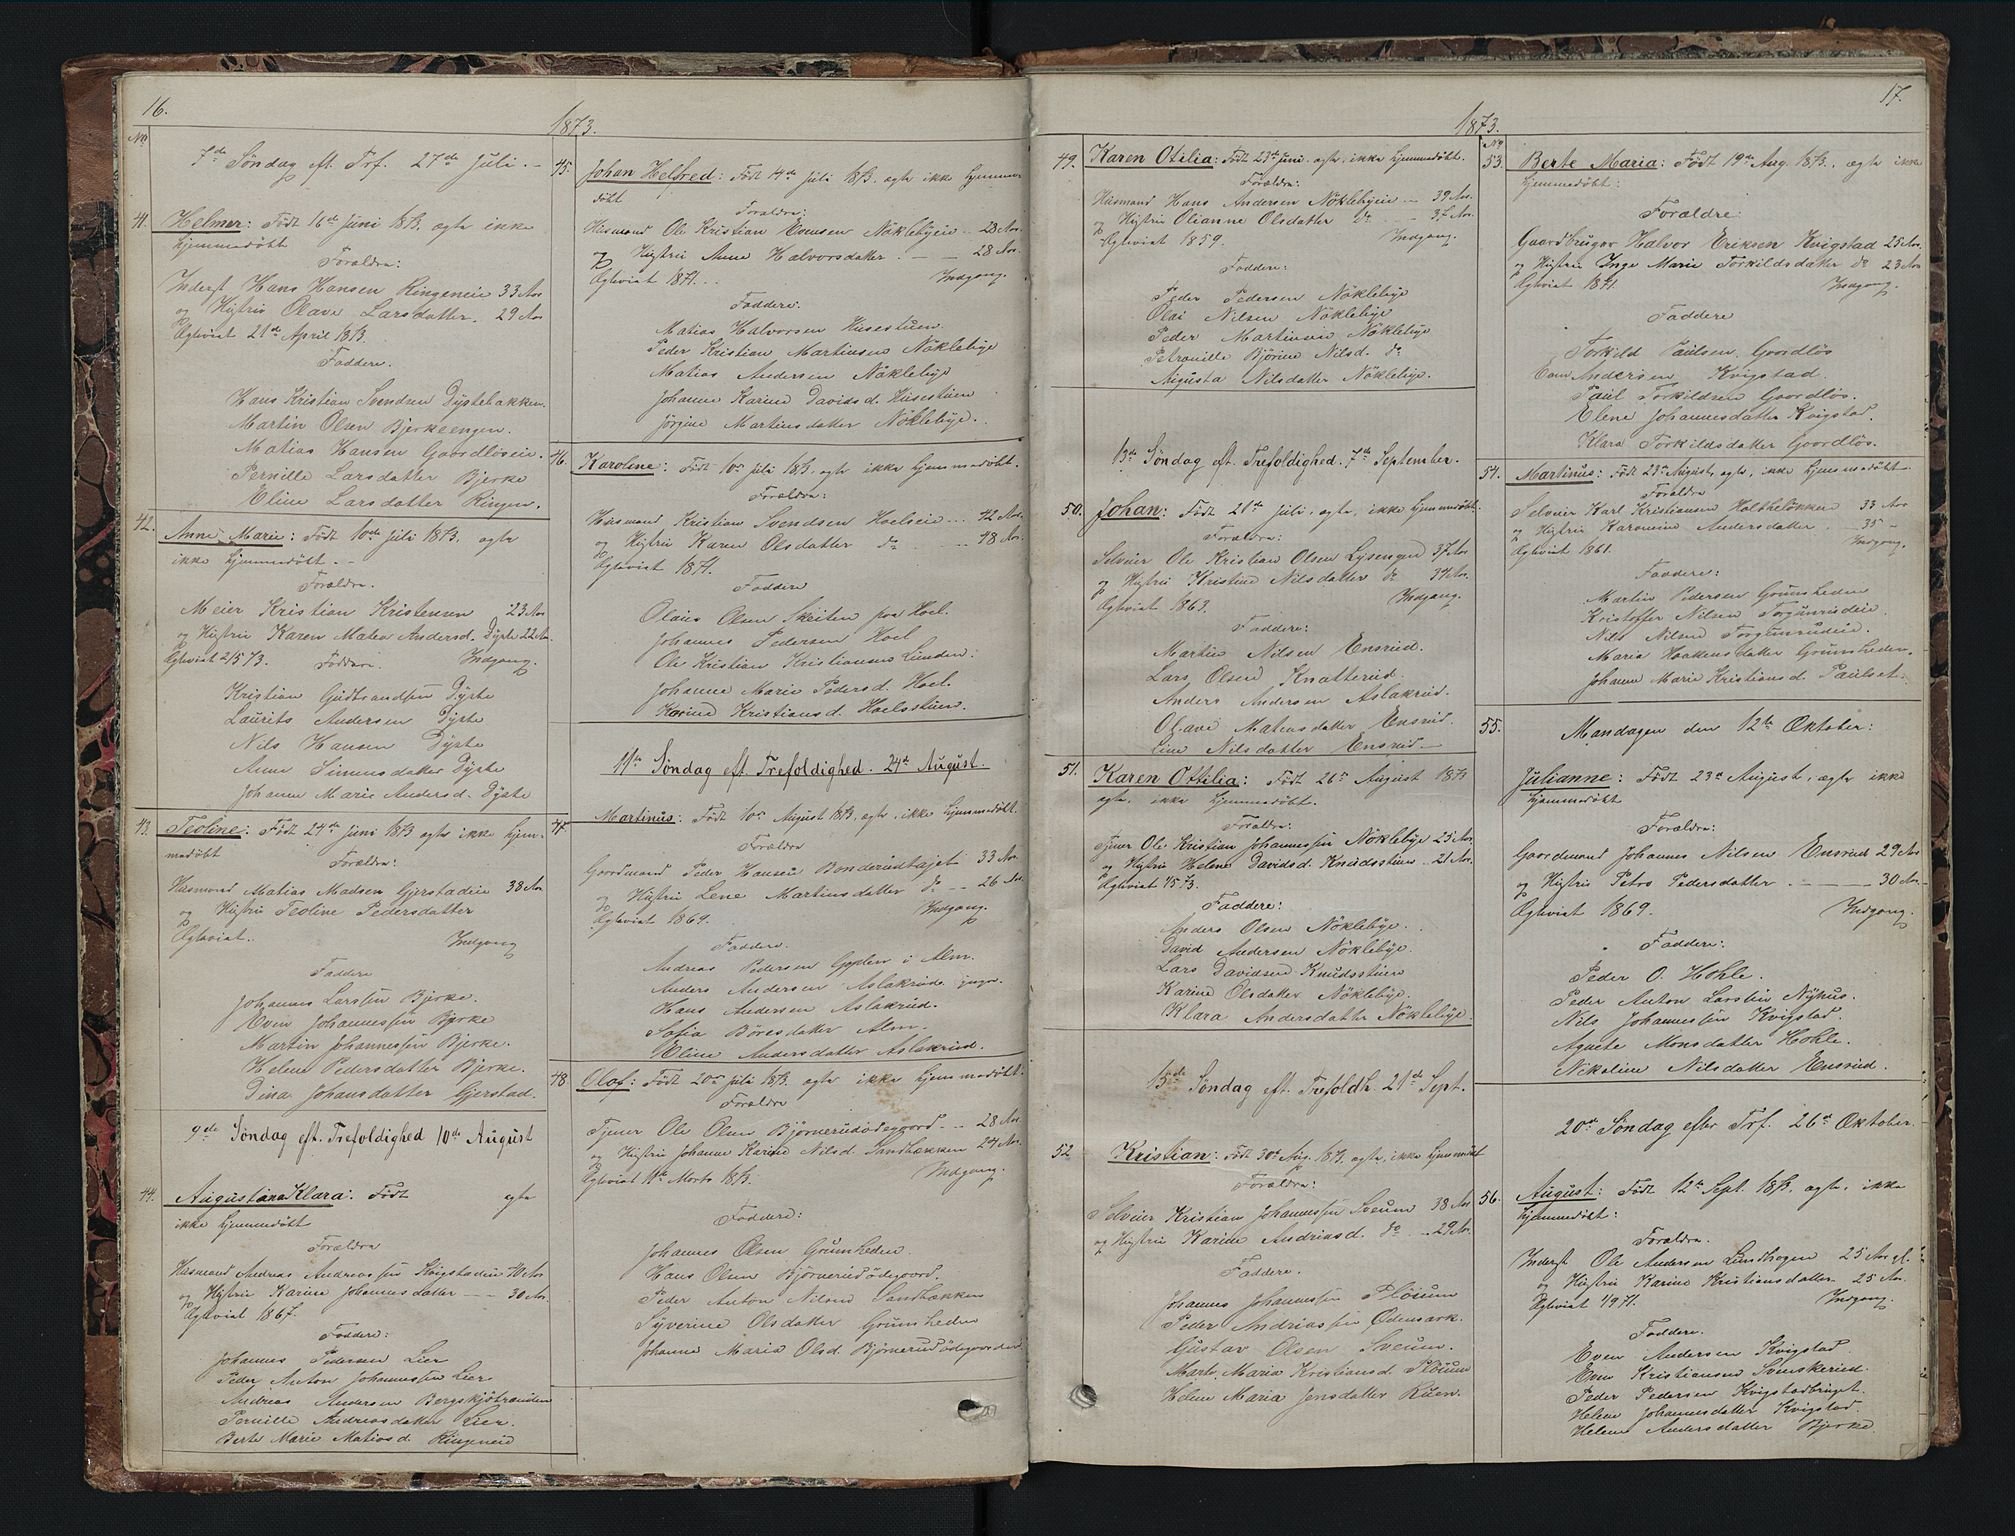 16.
1873.
No
7de Søndag eft. Trf. 27de Juli.
41. Helmer: Født 16de Juni 1873, ægte ikke
hjemmedøbt
Forældre:
Inderst Hans Hansen Ringeneie 33 Aar
og Hustru Olava Larsdatter. 29 Aar
Ægteviet 21de April 1873.
Faddere.
Hans Kristian Svendsen Dystebakken.
Martin Olsen Bjerkeengen.
Matias Hansen Gaardløseie.
Pernille Larsdatter Bjerke
Eline Larsdatter Ringen.
42. Anne Marie: Født 10de Juli 1873. ægte
ikke hjemmedøbt.
Forældre.
Meier Kristian Kristensen 23 Aar
og Hustru Karen Matea Andersd. Dyste 22 Aar
Ægteviet 2/5 73. Faddere. Indgang.
Kristian Gudbrandsen Dyste
Laurits Andersen Dyste
Nils Hansen Dyste
Anne Simensdatter Dyste
Johanne Marie Andersd. Dyste
43. Teoline: Født 24de Juni 1873 ægte ikke hjem-
medøbt
Forældre:
Husmand Matias Madsen Gjerstadeie 38 Aar
og Hustru Teoline Pedersdatter
Ægteviet. Indgang
Faddere
Johannes Larssen Bjerke.
Even Johannessen Bjerke
Martin Johannessen Bjerke.
Helene Pedersdatter Bjerke.
Dina Johansdatter Gjerstad.
9de Søndag eft. Trefoldighed 10de August
44. Augustina Klara: Født ægte
ikke hjemmedøbt
Forældre
Husmand Andreas Andreassen Kvigstadeie 40 Aar
og Hustru Karine Johannesdatter 30 Aar.
Ægteviet 1867.
Faddere:
Johannes Pedersen Lier
Peder Anton Johannessen Lier
Andreas Andersen
Pernille Andreasdatter Lier.
Berte Marie Matiasd. Ringeneie
45. Johan Helfred: Født 14de Juli 1873. ægte ikke hjemme-
døbt
Forældre:
Husmand Ole Kristian Evensen Nøklebyeie 23 Aar.
og Hustru Anne Halvorsdatter. 28 Aar.
Ægteviet 1871. Indgang.
Faddere.
Matias Halvorsen Husestuen.
Peder Kristian Martinsen Nøklebye
Matias Andersen Nøklebye
Johanne Karine Davidsd. Husestuen
Jørgine Martinsdatter Nøklebye.
46. Karoline: Født 10de Juli 1873. ægte ikke hjemmedøbt.
Forældre:
Husmand Kristian Svendsen Hoelseie 42 Aar.
og Hustru Karen Olsdatter do 48 Aar.
Ægteviet 1871.
Faddere
Olaus Olsen Skeiten paa Hoel.
Johannes Pedersen Hoel
Ole Kristian Kristiansen Linden:
Johanne Marie Pedersd. Hoel.
Karine Kristiansd. Hoelsstuen.
11te Søndag eft. Trefoldighed. 24de August.
47. Martinus: Født 10de August 1873. ægte, ikke hjemmedøbt.
Forældre
Gaardmand Peder Hansen Bonderudhajet 33 Aar
og Hustru Lene Martinsdatter do 26 Aar.
Ægteviet 1869. Indgang.
Faddere.
Andreas Pedersen Gplen i Alm.
Anders Andersen Aslakrud.
Hans Andersen Aslakrud.
Sofia Børesdatter Alm.
Eline Andersdatter Aslakrud.
48. Olof: Født 20de Juli 1873. ægte ikke hjemmedøbt:
Forældre
Tjener Ole Olsen Bjørnerudødegaard 28 Aar.
og Hustru Johanne Karine Nilsd. Sandbækken 24 Aar.
Ægteviet 11te Marts 1873. Indgang.
Faddere:
Johannes Olsen Grumheden.
Hans Olsen Bjørnerudødegaard.
Peder Anton Nilsen Sandbækken
Syverine Olsdatter Grumheden
Johanne Maria Olsd. Bjørnerudødegaarden
17.
1873.
49. Karen Otilia: Født 23de Juni. ægte. ikke hjemmedøbt.
Forældre:
Husmand Hans Andersen Nøklebyeie 39 Aar.
og Hustru Olianne Olsdatter do 37 Aar.
Ægteviet 1859. Indgang.
Faddere:
Peder Pedersen Nøklebye
Olai Nilsen Nøklebye
Peder Martinsen Nøklebye
Petronille Bjørine Nilsd. do
Augusta Nilsdatter Nøklebye.
13de Søndag eft. Trefoldighed. 7de September.
50. Johan: Født 21de Juli, ægte, ikke hjemmedøbt.
Forældre:
Selveier Ole Kristian Olsen Lysengen 37 Aar
og Hustru Kristine Nilsdatter do 34 Aar.
Ægteviet 1863. Indgang.
Faddere:
Martin Nilsen Ensrud.
Lars Olsen Knatterud.
Anders Andersen Aslakrud.
Olave Matensdatter Ensrud.
Line Nilsdatter Ensrud.
51. Karen Ottilia: Født 26de August 1873
ægte, ikke hjemmedøbt.
Forældre:
Tjener Ole Kristian Johannessen Nøklebye 25 Aar
og Hustru Helene Davidsd. Knudsstuen 21 Aar.
Ægteviet 4/5 73.
Faddere:
Anders Olsen Nøklebye.
David Andersen Nøklebye.
Lars Davidsen Knudsstuen
Karine Olsdatter Nøklebye.
Klara Andersdatter Nøklebye.
15de Søndag eft. Trefoldh. 21de Sept.
52 Kristian: Født 30de Aug. 1873, ægte, ikke hjemmedøbt
Forældre:
Selveier Kristian Johannessen Sveum 38 Aar
og Hustru Karine Andriasd. do 29 Aar.
Faddere.
Johannes Johannessen Plosum
Peder Andriassen Ødemark.
Gustav Olsen Sveum.
Marte Maria Kristiansd. Plosum
Helene Maria Jensdatter Ruen.
No
53. Berte Maria: Født 19de Aug. 1873. ægte ikke
hjemmedøbt:
Forældre:
Gaardbruger Halvor Eriksen Kvigstad 25 Aar.
og Hustru Inge Marie Torkildsdatter do 23 Aar
Ægteviet 1871. Indgang
Faddere
Torkild Paulsen Gaardløs
Even Andersen Kvigstad.
Paul Torkildsen Gaardløs.
Elene Johannesdatter Kvigstad.
Klara Torkildsdatter Gaardløs.
54. Martinus: Født 23de August, ægte, ikke hjemmedøbt
Forældre
Selveier Karl Kristiansen Holtheløkken 33 Aar
og Hustru Karoline Andersdatter 35 "
Ægteviet 1861. Indgang.
Faddere:
Martin Pedersen Grumheden
Kristoffer Nilsen Torgunrudeie.
Nils Nilsen Torgunrudeie.
Maria Haakensdatter Grumheden.
Johanne Marie Kristiansd. Paulset.
55. Mandagen den 12te Oktober:
Julianne: Født 23de August, ægte ikke
hjemmedøbt
Forældre:
Gaardmand Johannes Nilsen Ensrud 29 Aar
og Hustru Petra Pedersdatter 30 Aar.
Ægteviet 1869. Indgang.
Faddere:
Peder O. Hohle.
Peder Anton Larsen Nyhus.
Nils Johannessen Kvigstad.
Agnete Monsdatter Hohle.
Nikoline Nilsdatter Ensrud.
20de Søndag efter Trf. 26de Oktober.
56. August: Født 12te Sept. 1873, ægte, ikke
hjemmedøbt:
Forældre.
Inderst Ole Andersen Lundhagen 25 Aar gl.
og Hustru Karine Kristiansdatter 25 Aar.
Ægteviet 4/9 71. Indgang.
Faddere.
Even Andersen Kvigstad.
Even Kristiansen Svenskerud.
Peder Pedersen Kvigstadbruget.
Helene Johannesdatter Kvigstad.
Helene Andersdatter Bjerke